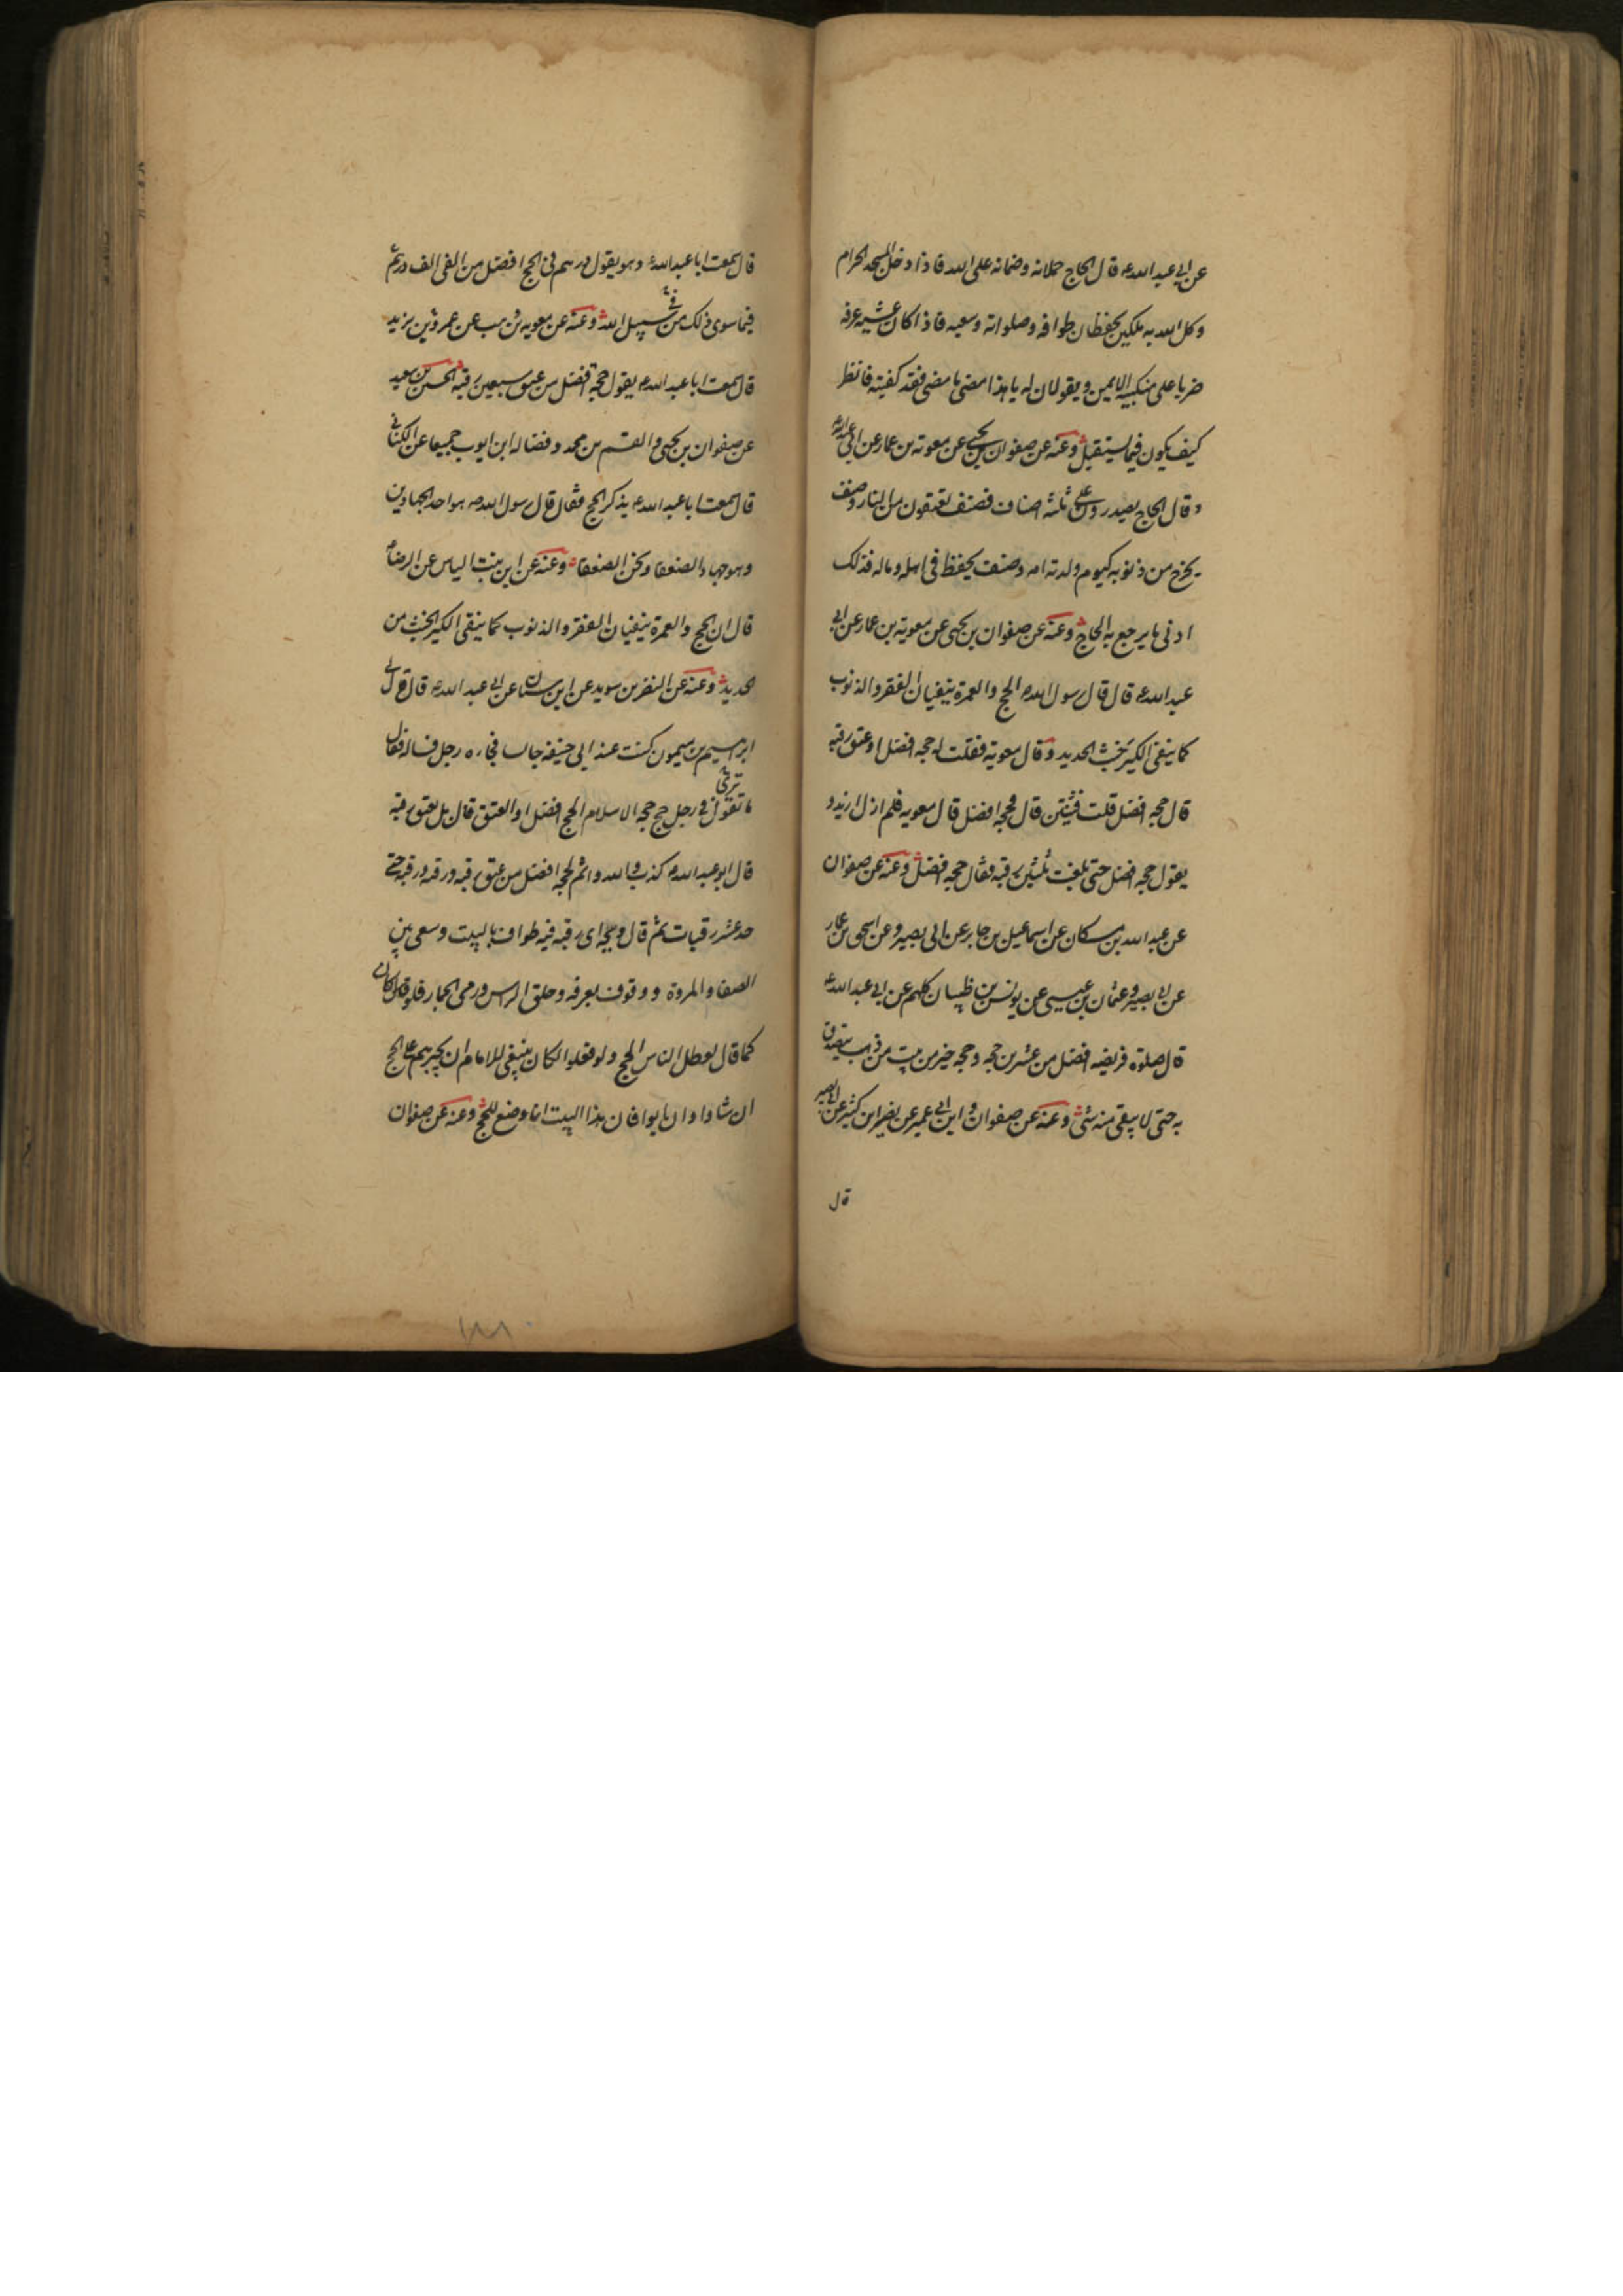 عن ابي عبد الله ع قال الحاج حملانه وضمانه على الله فاذا دخل المسجد الحرام
وكل الله به ملكين يحفظان طوافه وصلواته وسعيه فاذا كان عشيه عرفه
ضربا على منكبيه الايمن ويقولان له يا هذا ما مضى فقد كفيته فانظر
كيف يكون فيما يستقبل وعنه عن صفوان بن يحيى عن معوية بن عمار عن ابي عبد الله ع
وقال الحاج يصدرون على ثلثه اصناف فصنف يعتقون من النار وصنف
يخرج من ذنوبه كيوم ولدته امه وصنف يحفظ في اهله وماله فذلك
ادنى ما يرجع به الحاج وعنه عن صفوان بن يحيى عن معوية بن عمار عن ابي
عبد الله ع قال قال رسول الله ص الحج والعمرة ينفيان الفقر والذنوب
كما ينفى الكير خبث الحديد وقال معوية فقلت له حجه افضل او عتق رقبه
قال حجه افضل قلت فثنتين قال فحجه افضل قال معويه فلم ازل ازيد و
يقول حجه افضل حتى بلغت ثلثين رقبه فقال حجه افضل وعنه عن صفوان
عن عبد الله بن مسكان عن اسماعيل بن جابر عن ابي بصير وعن اسحق بن عمار
عن ابي بصير وعثمان بن عيسى عن يونس بن ظبيان كلهم عن ابي عبد الله ع
قال صلوة فريضه افضل من عشرين حجه وحجه خير من بيت من ذهب يتصدق
به حتى لا يبقى منه شئ وعنه عن صفوان وابن ابي عمير عن نصر ابن كثير عن ابي بصير
قال
قال سمعت ابا عبد الله ع وهو يقول درهم في الحج افضل من الفي الف درهم
فيما سوى ذلك من في سبيل الله وعنه عن معويه بن وهب عن عمرو بن يزيد
قال سمعت ابا عبد الله ع يقول حجة افضل من عتق سبعين رقبه الحسين بن سعيد
عن صفوان بن يحيى والقسم بن محمد وفضاله ابن ايوب جميعا عن الكناني
قال سمعت ابا عبد الله ع يذكر الحج فقال قال رسول الله ص هو احد الجهادين
وهو جهاد الضعفا ونحن الضعفا وعنه عن ابن بنت الياس عن الرضا ع
قال ان الحج والعمرة ينفيان الفقر والذنوب كما ينفى الكير الخبث من
الحديد وعنه عن النضر بن سويد عن ابن سنان عن ابي عبد الله ع قال قال لي
ابرهيم بن ميمون كنت عند ابي حنيفه جالسا فجاءه رجل فساله فقال
ما تقول ترى في رجل حج حجه الاسلام الحج افضل او العتق قال بل يعتق رقبه
قال ابو عبد الله ع كذب والله واثم لحجه افضل من عتق رقبه ورقبه ورقبه حتى
عد عشر رقبات ثم قال ويحه اى رقبه فيه طواف بالبيت وسعى بين
الصفا والمروة ووقوف بعرفه وحلق الراس ورمى الجمار فلو كان
كما قال لعطل الناس الحج ولو فعلوا لكان ينبغي للامام ان يجبرهم على الحج
ان شاؤا وان ابوا فان هذا البيت انما وضع للحج وعنه عن صفوان